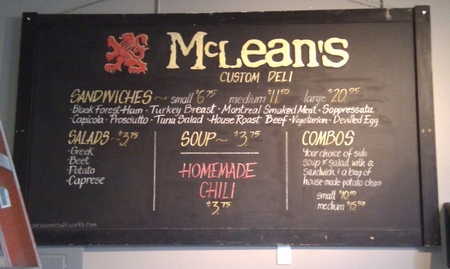 McLean's
CUSTOM DELI
SANDWICHES ~ small $6.75 medium $11.50 large $20.95
Black Forest Ham · Turkey Breast · Montreal Smoked Meat · Soppressata
Capicola · Prosciutto · Tuna Salad · House Roast Beef · Vegetarian · Devilled Egg
SALADS ~ $3.75
·Greek
·Beet
·Potato
·Caprese
SOUP ~ $3.75
HOMEMADE
CHILI
$3.75
COMBOS
Your choice of side
soup or salad with a
sandwich & a bag of
house made potato chips
small
medium